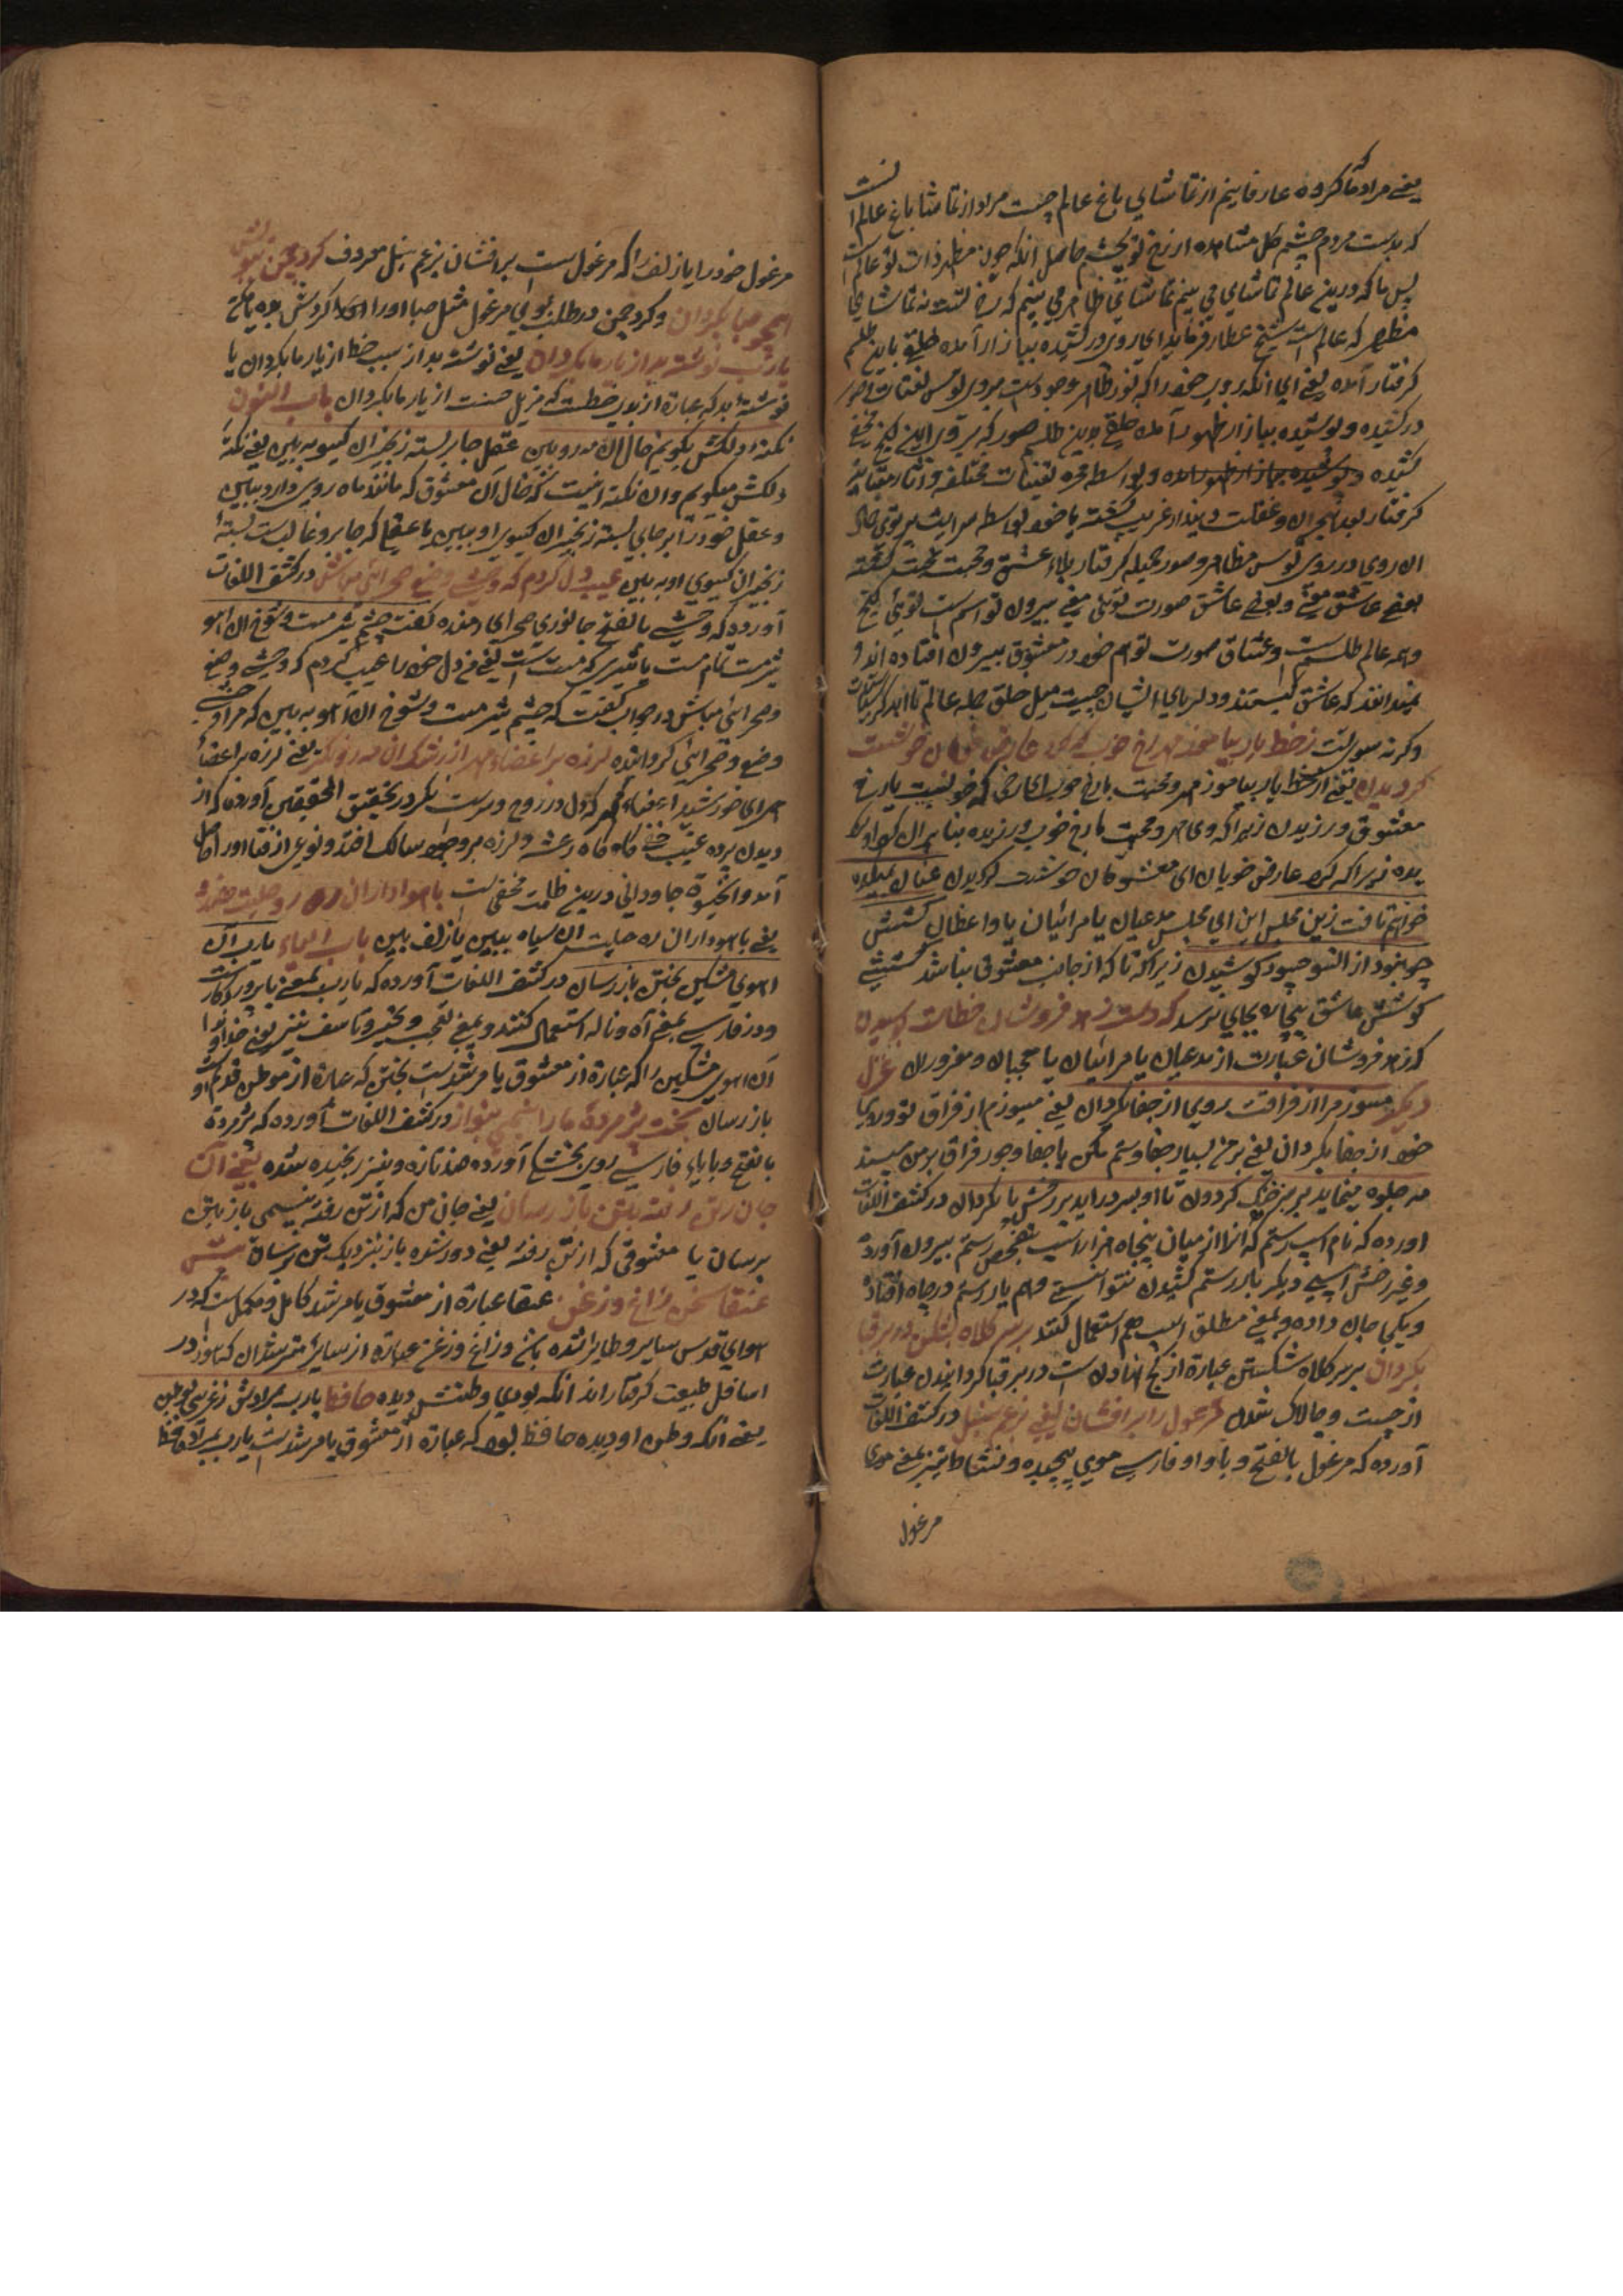 یعنی مراد ما کروه عارفانیم از تماشای باغ عالم چیست مراد از تماشا باغ عالم است
که بدست مردم چشم کل مشاهده از رخ تو بچشم حاصل انکه چون مظهر ذات تو عالم است
پس ما که درین عالم تماشای می بینم تماشای ظاهر می بینم که رخ تست نه تماشای
مظهر که عالم است شیخ عطار فرماید ای روی در کشیده ببازار آمده خلق باین طلسم
کرفتار آمده یعنی ای انکه روی خود را که نور ظاهر وجودست بروی پوش تعینات و صور
در کشیده و پوشیده ببازار ظهور آمده خلق بدین طلسم صور که بر روی این کنج مخفی
کشیده و بواسطه تعینات مختلفه و آثار متباینه
کرفتار بعد و هجران و غفلت و پندار غریب کشته یا خود بواسطه سرایت پرتوی جمال
ان روی در روی پوش مظاهر و صور جمیله کرفتار بلاء عشق و محبت کشته
بعضی عاشق معنی و بعضی عاشق صورت توئی معنی بیرون تو اسم است توئی کنج
و همه عالم طلسم است و عشاق صورت توهم خود در معشوق بیرون افتاده اند و
نمیدانند که عاشق کیستند و دلربای ایشان چیست میل خلق جمله عالم تا ابد
وکرنه سوی تست ز خط یار بیاموز مهر با رخ خوب که کرد عارض خوبان خوشست
کردیدن یعنی از خط یار بیاموز مهر و محبت با رخ خوب ای رخی که خوبست یا رخ
معشوق ورزیدن زیرا که وی مهر و محبت با رخ خوب ورزیده بنابران کرد او
بده زیرا که کرد عارض خوبان ای معشوقان خوشست کردیدن عنان بمیکده
خواهیم تافت زین مجلس ای مجلس مدعیان یا مرائیان یا واعظان کشش
چو نبود از انسو چسود کوشیدن زیرا که تا که از جانب معشوق نباشد کششی
کوشش عاشق بیچاره بجای نرسد که دست زهد فروشان خطاست بوسیدن
که زهد فروشان عبارت از مدعیان یا مرائیان یا محجبان و مغروران غزل
دیکر میسوزم از فراقت روی از جفا بکردان یعنی میسوزم از فراق تو و روی
خود از جفا بکردان یعنی بر من بسیار جفا و ستم مکن یا جفا و جور فراق بر من مپسند
مه جلوه مینماید بر سبز خنک کردون تا او بسر دراید بر رخش پا بکردان در کشف اللغات
اورده که نام اسپ رستم که انرا از میان پنجاه هزار اسپ بتفحص رستم بیرون آورده
وغیر رخش اسپی دیکر بار رستم کشیدن نتوانستی وهم با رستم در چاه افتاده
و یکی جان داده و بمعنی مطلق اسپ هم استعمال کنند بر سر کلاه بشکن در بر قبا
بکردان بر سر کلاه شکستن عبارة از کج نهادن است در بر قبا کردانیدن عبارت
از چست و چالاک شدن مرغول را برافشان یعنی برغم سنبل در کشف اللغات
آورده که مرغول بالفتح و با واو فارسی موی پیچیده و نشاط نیز بمعنی موی
مرغول
مرغول خود را یا زلف را که مرغول است برافشان برغم سنبل معروف کرد چمن بخوش
همچو صبا بکردان و کرد چمن در طلب بوی مرغول مثل صبا او را
یارب نوشته بد از یار ما بکردان یعنی نوشته بد از سبب خط از یار ما بکردان یا
نوشته بد که عبارة از بدی خطست که مزیل حسنت از یار ما بکردان باب النون
نکته دلکش بکویم خال ان مه رو ببین عقل و جان بسته زنجیر ان کیسو ببین یعنی نکته
دلکش میکویم وان نکته اینست که خال آن معشوق که مانند ماه روی دارد ببین
و عقل خود را بر جای بسته زنجیر ان کیسوی او ببین یا عقل که جابر و غالبست بسته
زنجیر ان کیسوی او ببین عیب دل کردم که وحشی وضع و صحرائی مباش در کشف اللغات
آورده که وحشی بالفتح جانوری صحرای رمنده کفت چشم شیر مست و شوخ ان اهو
شیر مست تمام مست یا شیری که مست است یعنی دل خود را عیب کردم که وحشی وضع
و صحرائی مباش در جواب کفت که چشم شیر مست و شوخ ان اهو ببین که مرا وحشی
وضع و صحرائی کردانیده لرزه بر اعضاء مهر از رشک ان مه رو نکر یعنی لرزه بر اعضاء
مهر ای خورشید در تحقیق المحققین آورده که از
دیدن پرده غیب کاه کاه رعشه و لرزه بر وجود سالک افتد و نوعی از فنا او را حاصل
آمد و انجیوة جاودانی درین ظلمت مخفی است با هواداران ره رو حلیت هندو
یعنی با هواداران ره حلیت ان سیاه ببین یا زلف ببین باب الیاء یارب آن
اهوی مشکین بختن باز رسان در کشف اللغات آورده که یارب بمعنی یا پروردکار است
و در فارسی بمعنی آه و ناله استعمال کنند و بمعنی تعجب و تحیر و تاسف نیز یعنی خداوندا
آن اهوی مشکین را که عبارة از معشوق یا مرشد است بختن که عبارة از موطن قدیم او
باز رسان بخت پژمرده ما را بنسیمی بنواز در کشف اللغات آورده که پژمرده
بالفتح و بابای فارسی آورده ضد تازه و نیز رنجیده شده یعنی آن
جان ز تن رفته بتن باز رسان یعنی جان من که از تن رفته بنسیمی باز بتن
برسان یا معشوقی که از تن رفته یعنی دور شده باز بنزدیک تن برسان پیش
عنقا سخن زاغ و زغن عنقا عبارة از معشوق یا مرشد کامل و مکمل است که در
هوای قدس سایر و طایر شده و زاغ و زغن عبارة از سایر مسترشدان که هنوز در
اسافل طبیعت کرفتار اند انکه بودی وطنش دیده حافظ یارب بمرادش ز غریبی بوطن
یعنی آنکه وطن او دیده حافظ بود که عبارة از معشوق یا مرشد است یارب بمراد حافظ